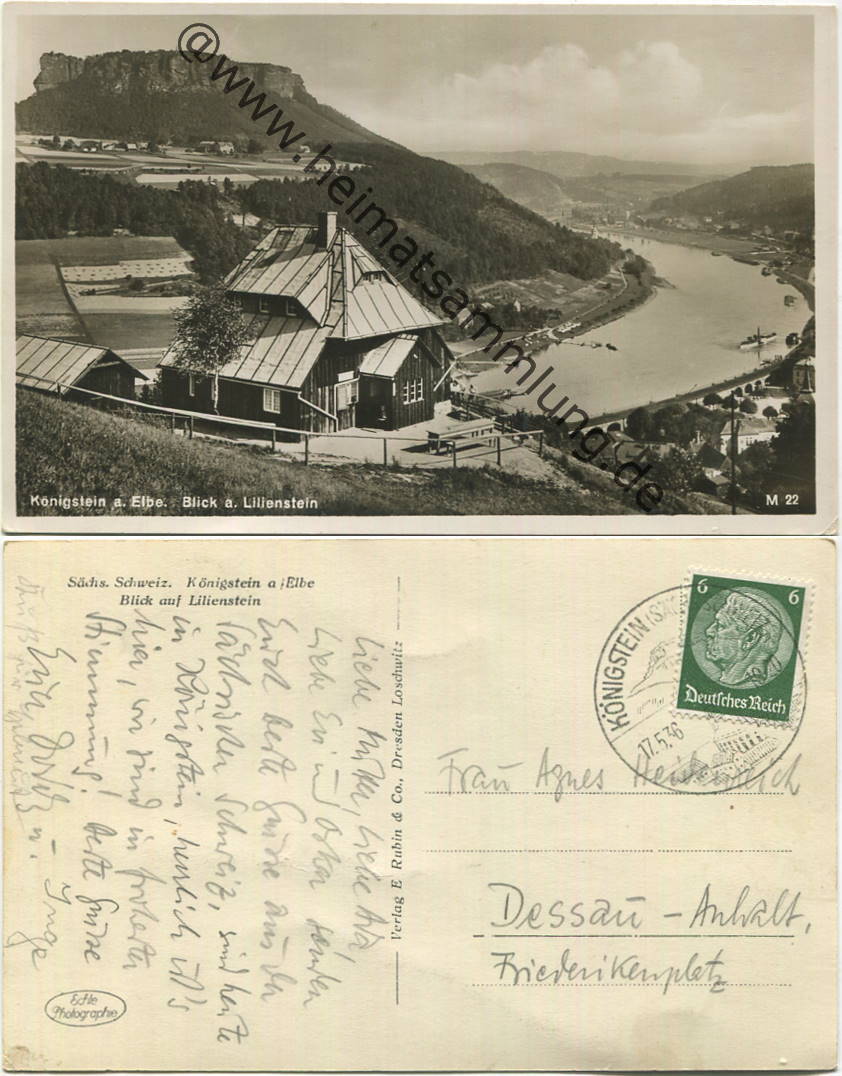 @www.heimatsammlung.de
Königstein a. Elbe. Blick a. Lilienstein
M 22
Sächs. Schweiz. Königstein a /Elbe
Blick auf Lilienstein
Verlag E Rubin & Co., Dresden Loschwitz
Echte
Photographie
KÖNIGSTEIN (SÄ
17.5.36
6 6
Deutsches Reich
Frau Agnes
Dessau - Anhalt,
Friederikenplatz
Liebe Mutter, liebe
Liebe Evi und Oskar senden
Euch beste Grüße aus der
Sächsischen Schweiz, sind heute
in Königstein, herrlich ist's
hier, wir sind in froher
Stimmung! Beste Grüße
Eure u. Inge